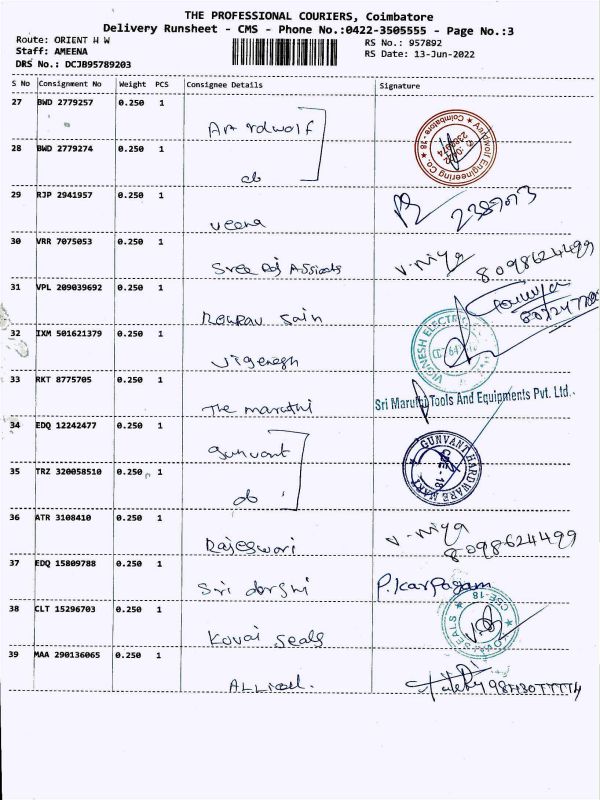 THE PROFESSIONAL COURIERS, Coimbatore
Delivery Runsheet - CMS - Phone No.:0422-3505555 - Page No.:3
Route: ORIENT H W
RS No.: 957892
Staff: AMEENA
RS Date: 13-Jun-2022
DRS No.: DCJB95789203
S No Consignment No Weight PCS Consignee Details Signature
27 BWD 2779257 0.250 1
28 BWD 2779274 0.250 1
do
Aardwolf Engineering Co. ★ Coimbatore - 18 ★
29 RJP 2941957 0.250 1
veena
30 VRR 7075053 0.250 1
Sree
V. Niya 8098624499
31 VPL 209039692 0.250 1
32 IXM 501621379 0.250 1
VIGNESH ELECTRICALS
33 RKT 8775705 0.250 1
The maruthi
Sri Maruthi Tools And Equipments Pvt. Ltd.
34 EDQ 12242477 0.250 1
gunvant
35 TRZ 320058510 0.250 1
do
GUNVANT HARDWARE MART CBE - 18
36 ATR 3108410 0.250 1
Rajeswari
V. Niya
8098624499
37 EDQ 15809788 0.250 1
Sri darshi
P. Karpagam
38 CLT 15296703 0.250 1
Kovai Seals
KOVAI SEALS ★ CBE-18 ★
39 MAA 290136065 0.250 1